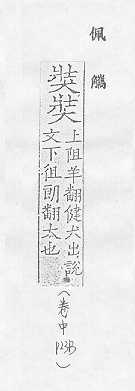 佩觿
奘
上阻羊翻健犬出說
文下徂朗翻太也
(卷中 P23B)